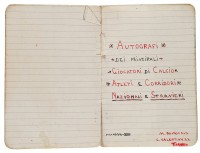 * AUTOGRAFI *
DEI PRINCIPALI
* GIOCATORI DI CALCIO *
* ATLETI E CORRIDORI *
NAZIONALI E STRANIERI